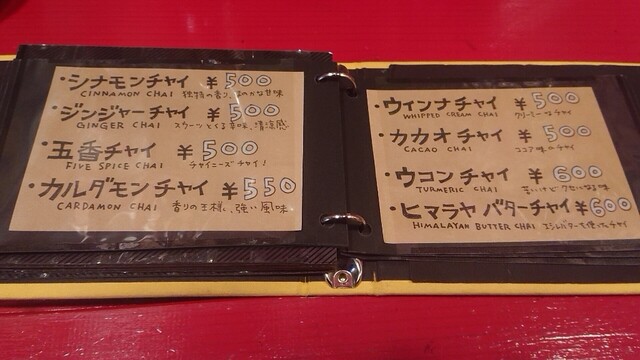 ・シナモンチャイ ¥500
CINNAMON CHAI 独特の香り、ほのかな甘味
・ジンジャーチャイ ¥500
GINGER CHAI スゥーンとくる辛味、清涼感
・五香チャイ ¥500
FIVE SPICE CHAI チャイニーズチャイ!
・カルダモンチャイ ¥550
CARDAMON CHAI 香りの王様、強い風味
・ウィンナチャイ ¥500
WHIPPED CREAM CHAI クリーミーなチャイ
・カカオチャイ ¥500
CACAO CHAI ココア味のチャイ
・ウコンチャイ ¥600
TURMERIC CHAI 苦いけどクセになる味
・ヒマラヤバターチャイ ¥600
HIMALAYAN BUTTER CHAI バターを使ったチャイ